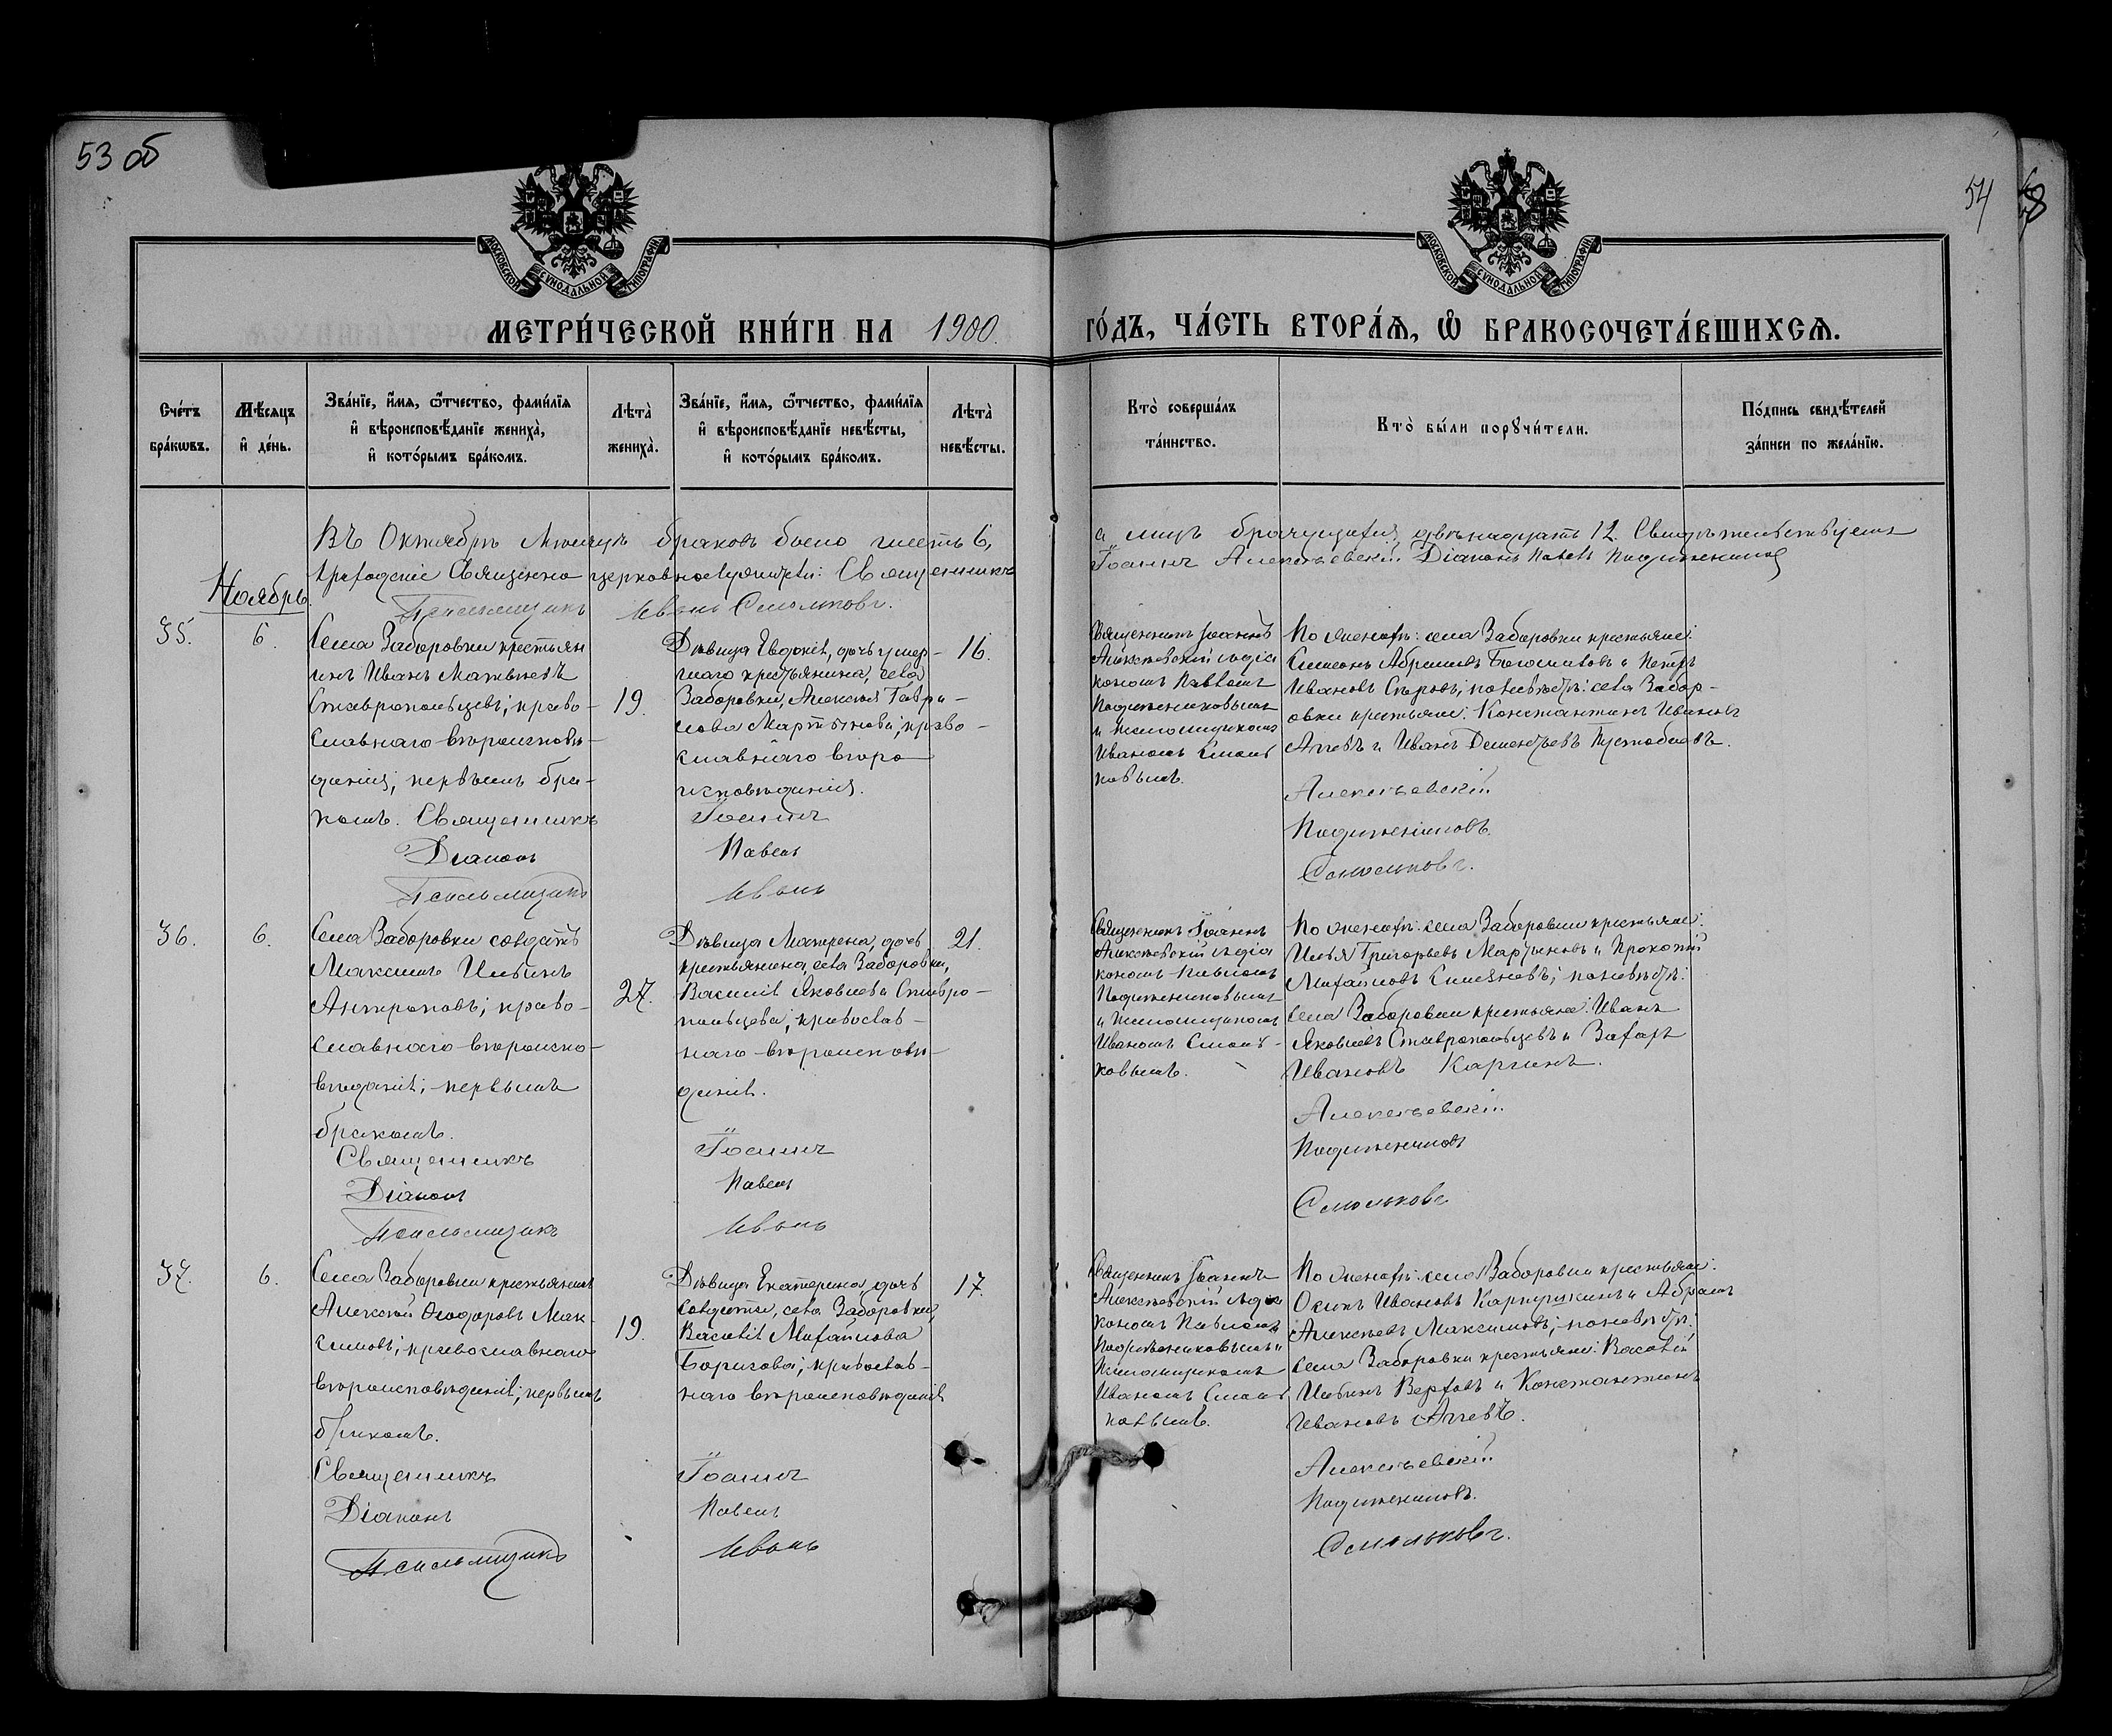 53 об
54
МОСКОВСКОЙ СУНОДАЛЬНОЙ ТИПОГРАФІИ
МОСКОВСКОЙ СУНОДАЛЬНОЙ ТИПОГРАФІИ
МЕТРИ́ЧЕСКОЙ КНИ́ГИ НА 1900.
ГО́ДЪ, ЧА́СТЬ ВТОРА́Я, Ѿ БРАКОСОЧЕТА́ВШИХСЯ.
Сче́тъ бра́кѡвъ.
Мѣ́сяцъ и҆ де́нь.
Зва́нїе, и҆́мя, ѻ҆́тчество, фами́лїя и҆ вѣроисповѣ́данїе жениха̀, и҆ кото́рымъ бра́комъ.
Лѣта̀ жениха̀.
Зва́нїе, и҆́мя, ѻ҆́тчество, фами́лїя и҆ вѣроисповѣ́данїе невѣ́сты, и҆ кото́рымъ бра́комъ.
Лѣта̀ невѣ́сты.
Кто̀ соверша́лъ та́инство.
Кто̀ бы́ли порꙋчи́тели.
По́дпись свидѣ́телей за́писи по жела́нїю.
Въ Октябрѣ мѣсяцѣ браковъ было шесть 6,
а лицъ брачущихся двѣнадцать 12. Свидѣтельствуемъ
Священно церковнослужители: Священникъ
Іоаннъ Алексѣевскій Діаконъ Павелъ
Псаломщикъ Иванъ Смольковъ.
Ноябрь
35.
6.
Села Заборовки крестьян
инъ Иванъ Матвѣевъ
Ставропольцевъ; право-
славнаго вѣроисповѣ-
данія; первымъ бра-
комъ. Священникъ
Діаконъ
Псаломщикъ
19.
Дѣвица Евдокія, дочь умер-
шаго крестьянина, села
Заборовки, Алексѣя Гаври-
лова Мартынова; право-
славнаго вѣро
исповѣданія.
Іоаннъ
Павелъ
Иванъ
16.
Священникъ Іоаннъ
Алексѣевскій съ діа
кономъ Павломъ
и псаломщикомъ
Иваномъ Смоль
ковымъ.
По женихѣ: села Заборовки крестьяне:
Симеонъ Абрамовъ Богомоловъ и Петръ
Ивановъ Сѣровъ; по невѣстѣ: села Забор-
овки крестьяне: Константинъ Ивановъ
Агеевъ и Иванъ Дементьевъ Пустобаевъ.
Алексѣевскій
Смольковъ.
36.
6.
Села Заборовки солдатъ
Максимъ Ильинъ
Антроповъ; право-
славнаго вѣроиспо-
вѣданія; первымъ
бракомъ.
Священникъ
Діаконъ
Псаломщикъ
27.
Дѣвица Матрена, дочь
крестьянина, села Заборовки,
Василія Яковлева Ставро-
польцева; православ-
наго вѣроисповѣ-
данія.
Іоаннъ
Павелъ
Иванъ
21.
Священникъ Іоаннъ
Алексѣевскій съ діа
кономъ Павломъ
и псаломщикомъ
Иваномъ Смоль-
ковымъ.
По женихѣ: села Заборовки крестьяне:
Илья Григорьевъ Мартыновъ и Прокопій
Михайловъ Симяновъ; по невѣстѣ:
села Заборовки крестьяне: Иванъ
Яковлевъ Ставропольцевъ и Захаръ
Ивановъ Каргинъ.
Алексѣевскій
Смольковъ
37.
6.
Села Заборовки крестьянинъ
Алексѣй Ѳеодоровъ Мак-
симовъ; православнаго
вѣроисповѣданія; первымъ
бракомъ.
Священникъ
Діаконъ
Псаломщикъ
19.
Дѣвица Екатерина, дочь
солдата, села Заборовки,
Василія Михайлова
Борисова; православ-
наго вѣроисповѣданія
Іоаннъ
Павелъ
Иванъ
17.
Священникъ Іоаннъ
Алексѣевскій съ діа
кономъ Павломъ
псаломщикомъ
Иваномъ Смоль
ковымъ.
По женихѣ: села Заборовки крестьяне:
Осипъ Ивановъ Карпушкинъ и Абрамъ
Алексѣевъ Максимовъ; по невѣстѣ:
села Заборовки крестьяне: Василій
Ильинъ Верховъ и Константинъ
Ивановъ Агеевъ.
Алексѣевскій
Смольковъ.